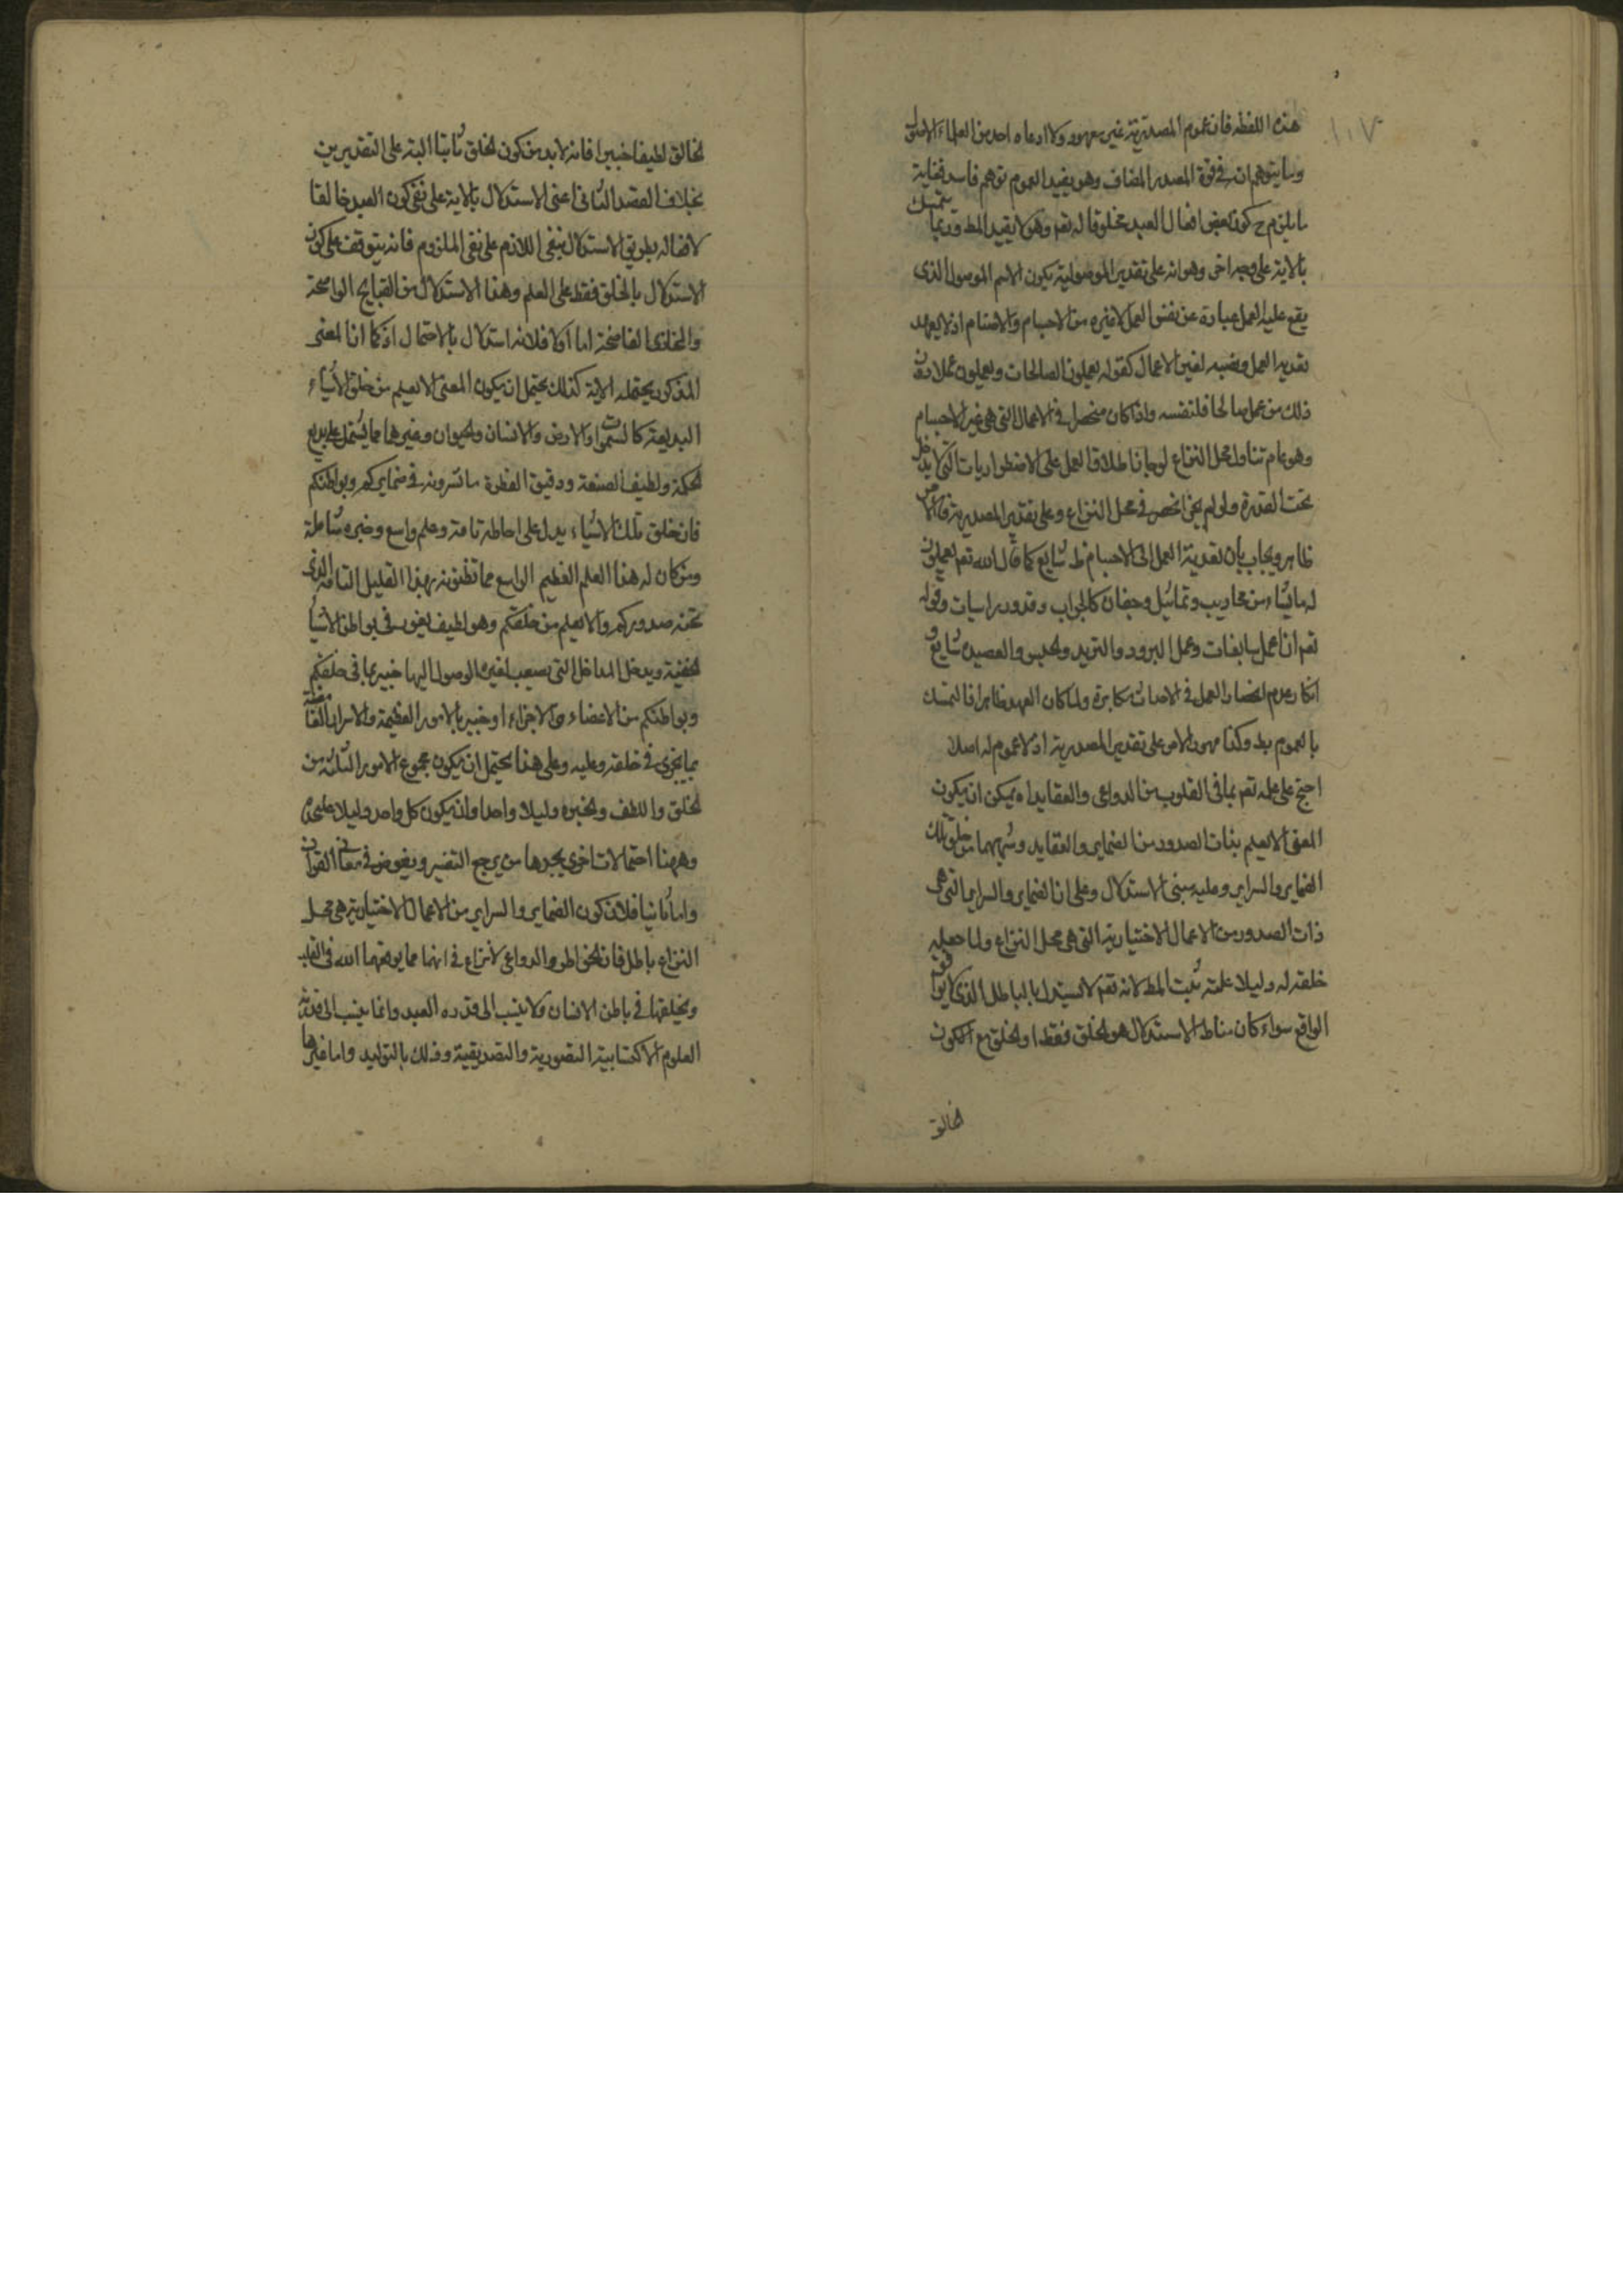 ١١٧
هذه اللفظه فان عموم المصدرية غير معهود ولا ادعاه احد من العلماء الاصول
وما يتوهم انه في قوة المصدر المضاف وهو يفيد العموم توهم فاسد فغاية
ما يلزم ح كون بعض افعال العبد مخلوقا له تعم وهو لا يفيد المط وربما يتمسك
بالاية على وجه اخر وهو انه على تقدير الموصولية يكون الاسم الموصول الذي
يقع عليه العمل عبارة عن نفس العمل لا غيره من الاجسام والاصنام اذ لا يعهد
تقدير العمل ونصبه لغير الاعمال كقوله يعملون الصالحات ويعملون عملا دون
ذلك من عمل صالحا فلنفسه واذا كان منحصرا في الاعمال التي هي غير الاجسام
وهو عام تناول محل النزاع لوجازنا طلاق العمل على الاضطراريات التي لا يدخل
تحت القدرة ولو لم يجز انحصر في محل النزاع وعلى تقدير المصدرية فالامر
ظاهر ويجاب بان تعدية العمل الى الاجسام ظ شايع كما قال الله تعم يعملون
له ما يشاء من محاريب وتماثيل وجفان كالجواب وقدور راسيات وقوله
تعم ان اعمل سابغات وعمل البرود والثريد والحيس والعصيدة شايع و
انكار عدم انحصار العمل في الاحداث مكابرة ولما كان العهد ظاهرا فالتمسك
بالعموم بط وكذا مهد الامر على تقدير المصدرية اذ لا عموم له اصلا
احتج على علمه تعم بما في القلوب من الدواعي والعقايد اه يمكن ان يكون
المعنى الا يعلم بذات الصدور من الضماير والعقايد وشبههما من خلق تلك
الضماير والسراير وعليه مبنى الاستدلال وعلى ان الضماير والسراير التي هي
ذات الصدور من الاعمال الاختيارية التي هي محل النزاع ولما جعل
خلقه له دليلا علمه ثبت المط لانه تعم لا يستدل بالباطل الذي لا يوافق
الواقع سواء كان مناط الاستدلال هو الخلق فقط او الخلق مع الكون
خالق
الخالق لطيفا خبيرا فانه لابد من كون الخلق ثابتا البتة على التقديرين
بخلاف القصد الثاني اعني الاستدلال بالاية على نفي كون العبد خالقا
لافعاله بطريق الاستدلال بنفي اللازم على نفي الملزوم فانه يتوقف على كون
الاستدلال بالخلق فقط على العلم وهذا الاستدلال من القبايح الواضحة
والمخازي الفاضحة اما اولا فلانه استدلال بالاحتمال اذ كما ان المعنى
المذكور يحتمله الاية كذلك يحتمل ان يكون المعنى الا يعلم من خلق الاشياء
البديعة كالسموات والارض والانسان والحيوان وغيرها مما يشتمل على بديع
الحكمة ولطيف الصنعة ودقيق الفطرة ما تسرونه في ضمايركم وبواطنكم
فان خلق تلك الاشياء يدل على احاطة تامة وعلم واسع وخبره شاملة
ومن كان له هذا العلم العظيم الواسع مما تظنونه بهذا القليل التافه الذي
تجنه صدوركم والا يعلم من خلقكم وهو لطيف يغوص في بواطن الاشيا
الخفية ويدخل المداخل التي يصعب لغيره الوصول اليها خبير بما في خلقكم
وبواطنكم من الاعضاء والاجزاء او خبير بالامور العظيمة والاسرار الغامضة
بما يجري في خلقه وعليه وعلى هذا يحتمل ان يكون مجموع الامور الثلثة من
الخلق واللطف والخبره دليلا واحدا وان يكون كل واحد دليلا على حده
وههنا احتمالات اخرى يجدها من يرجع التفسير ويغوص في معاني القران
واما ثانيا فلان كون الضماير والسراير من الاعمال الاختيارية هي محل
النزاع باطل فان الخواطر والدواعي لا نزاع في انهما مما يوقعهما الله في القلب
ويخلقها في باطن الانسان ولا ينسب الى قدره العبد وانما ينسب الى قدرته
العلوم الاكتسابية التصورية والتصديقية وذلك بالتوليد واما غيرها